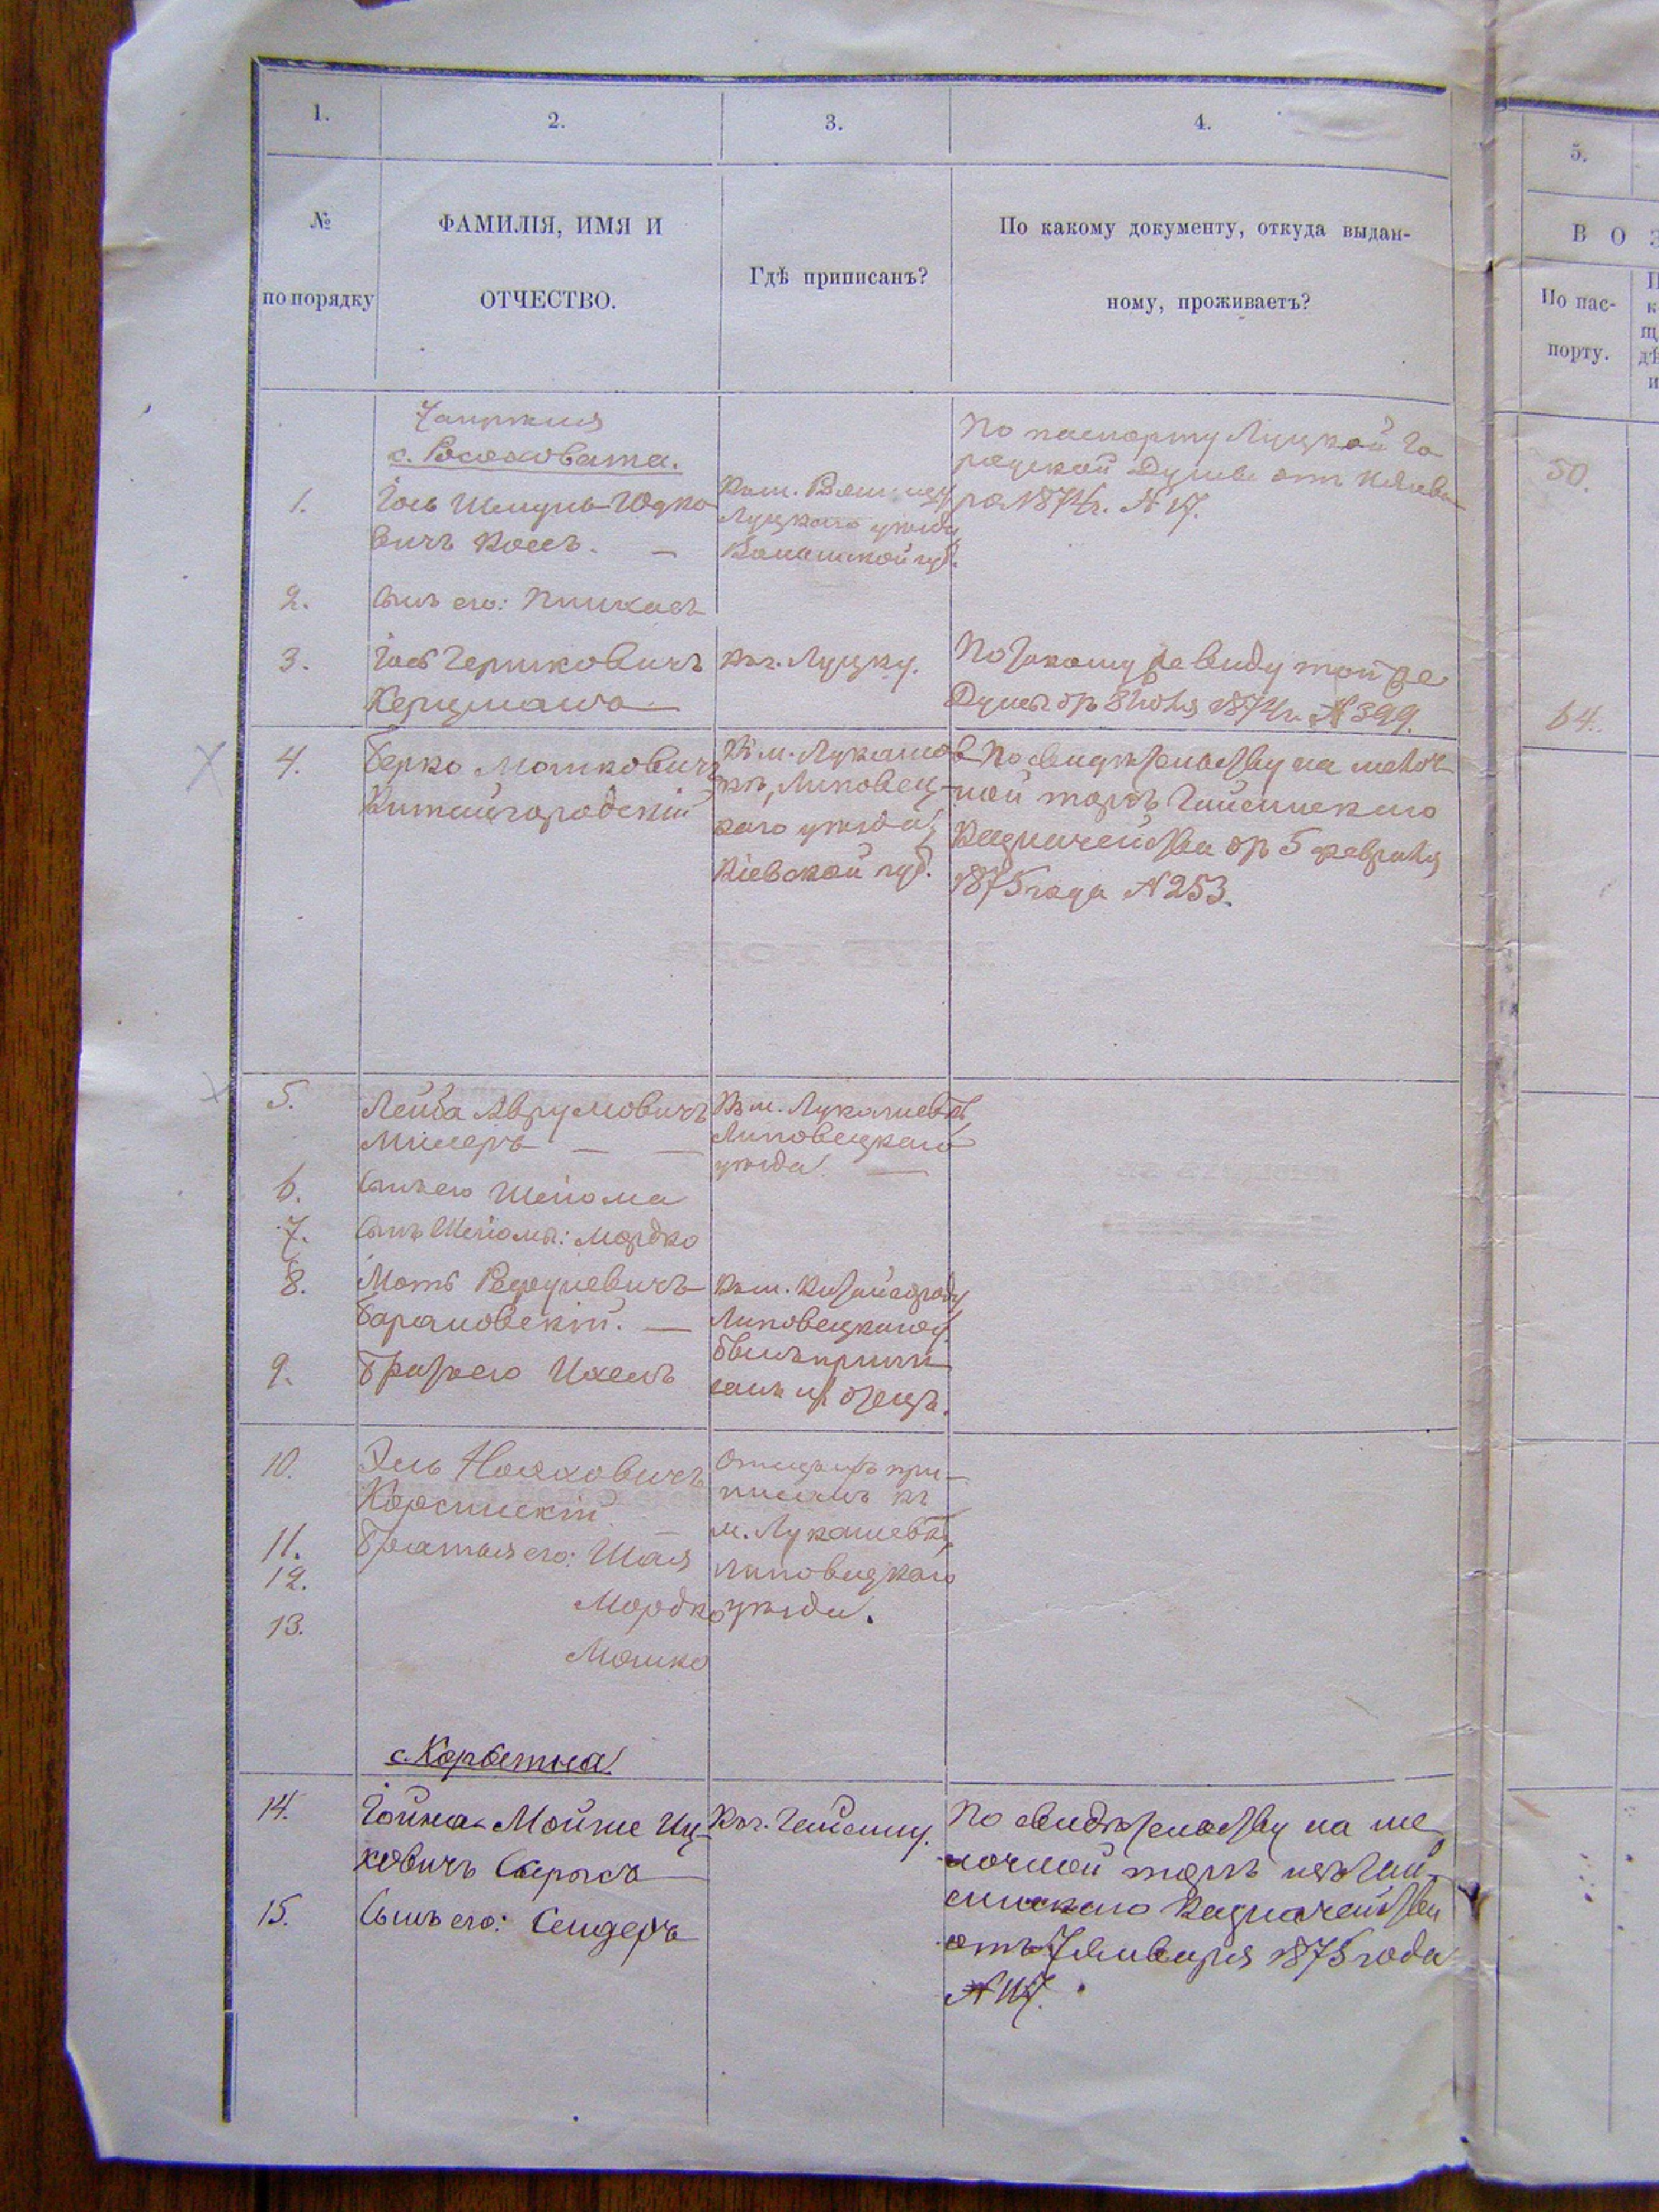 1.
2.
3.
4.
5.
№
по порядку
ФАМИЛІЯ, ИМЯ И
ОТЧЕСТВО.
Гдѣ приписанъ?
По какому документу, откуда выдан-
ному, проживаетъ?
В О З
По пас-
порту.
с. Росоховата.
1.
Іось Шмуль-Юдко
вичъ Коссъ. —
Луцкаго уѣзда
Волынской губ.
По паспорту Луцкой Го
родской Думы отъ
ря 1874 г. № 17.
50.
2.
Сынъ его: Пинхасъ
3.
Іось Гершковичъ
Керцмань
Къ г. Луцку.
По такому же виду той же
Думы отъ 8 Іюля 1874 г. № 399.
64.
4.
Берко Мошковичъ
Китайгородскій
Къ м. Лукашов
кѣ, Липовец-
каго уѣзда,
Кіевской губ.
По свидѣтельству на мелоч
ной торгъ Гайсинскаго
Казначейства отъ 5 февраля
1875 года № 253.
5.
Лейба Аврумовичъ
Милеръ — —
Къ м. Лукашевкѣ,
Липовецкаго
уѣзда. —
6.
Сынъ его Шейома
7.
Сынъ Шейомы: Мордко
8.
Моть
Барановскій. —
Къ м. Китайгороду
Липовецкаго у.
былъ припи
санъ их отецъ.
9.
Братъ его Ихель
10.
Эль Нояховичъ
Корсинскій.
Отецъ ихъ при-
писанъ къ
м. Лукашевкѣ,
Липовецкаго
уѣзда.
11.
Братья его: Шая
12.
Мордко
13.
Мошко
с. Корбетна
14.
Іойна-Мойше Иц-
ковичъ
Къ г. Гайсину.
По свидѣтельству на ме
лочной торгъ изъ Гай-
синскаго Казначейства
отъ 7 Января 1875 года
№ 117.
15.
Сынъ его: Сендеръ